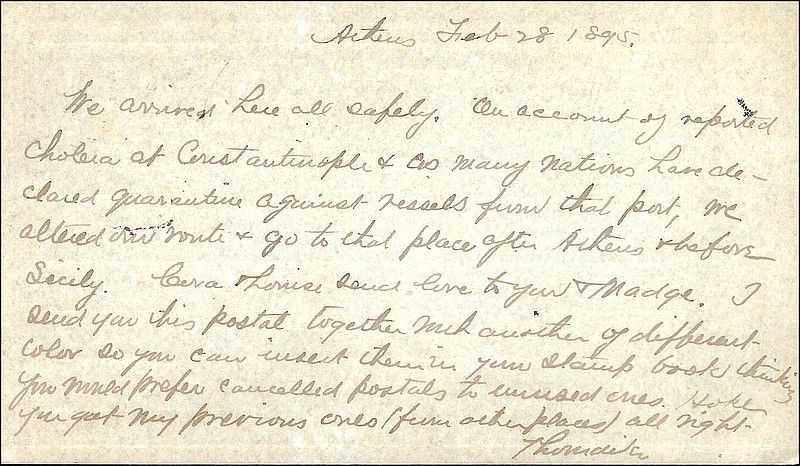 Athens Feb 28 1895.
We arrived here all safely. On account of reported
cholera at Constantinople & as many nations have de-
clared quarantine against vessels from that port, we
altered our route & go to that place after Athens & before
Sicily. Cora & Louise send love to you & Madge. I
send you this postal together with another of different
color so you can insert them in your stamp book thinking
you would prefer cancelled postals to unused ones. Hope
you got my previous ones (from other places) all right.
Thorndike